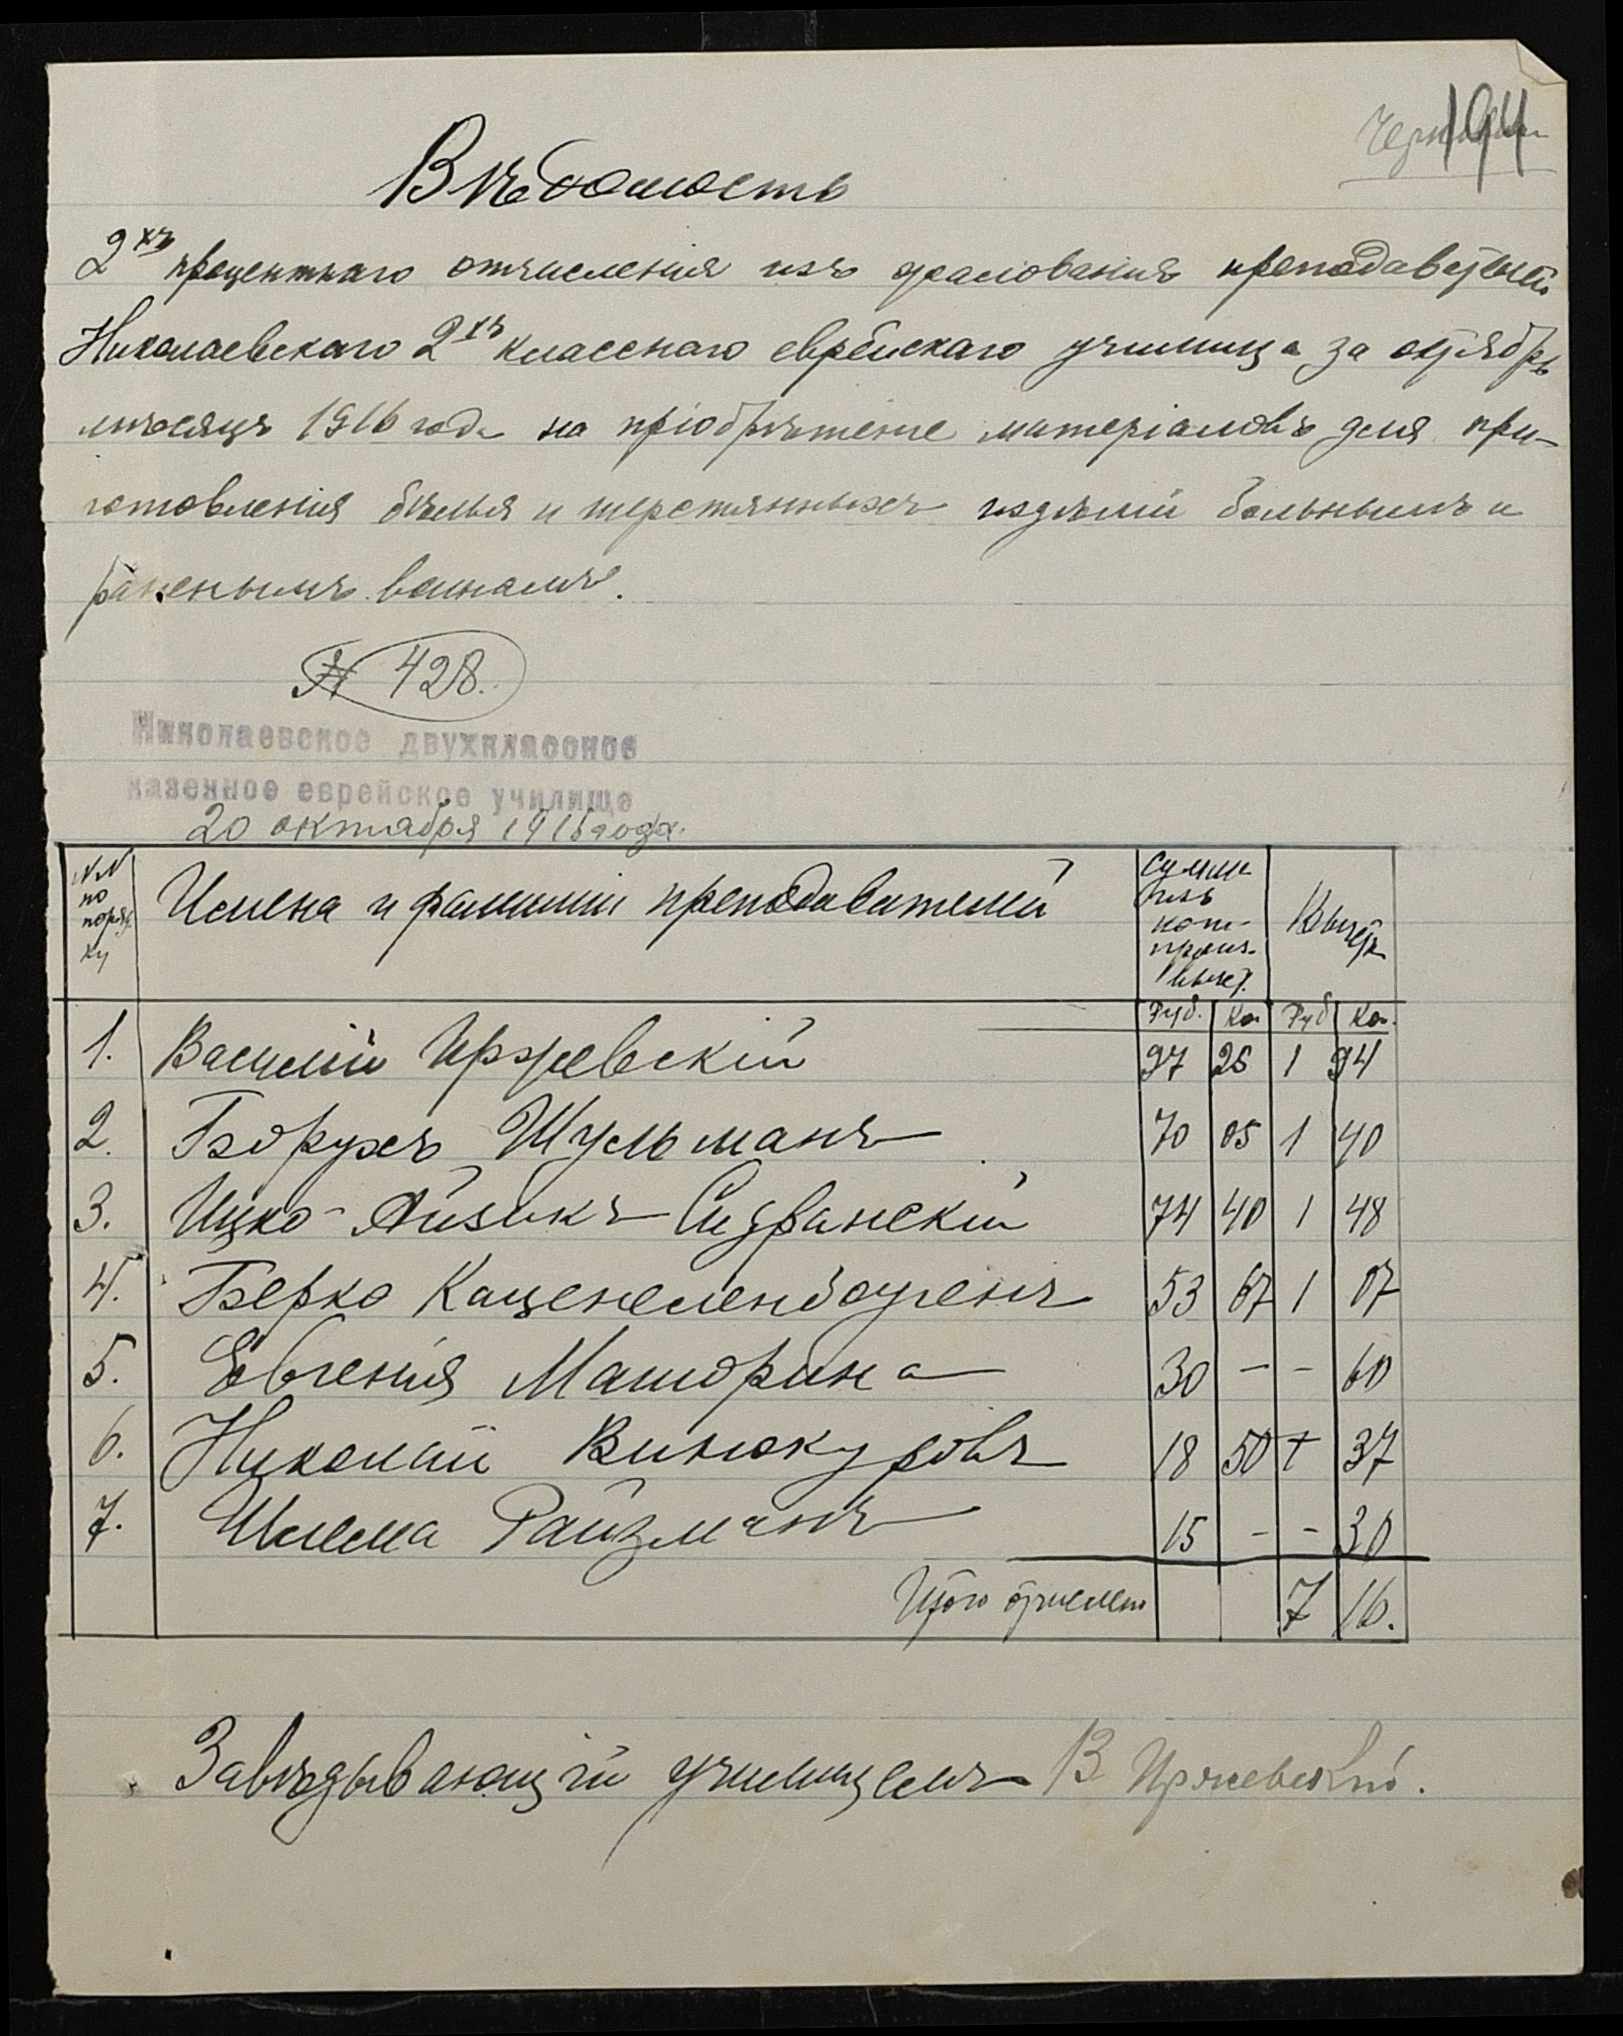 194
Вѣдомость
2хъ процентнаго отчисленія изъ жалованія преподавателей
Николаевскаго 2хъ класснаго еврейскаго училища за октябрь
мѣсяцъ 1916 года на пріобрѣтеніе матеріаловъ для при-
готовленія бѣлья и шерстянныхъ издѣлій больнымъ и
раненымъ воинамъ.
№ 428.
Николаевское двухклассное
казенное еврейское училище
20 октября 1916 года.
№№ по порядку Имена и фамиліи преподавателей Сумма изъ кот. произ. вычет. Вычетъ
Руб. Коп Руб Коп.
1. Василій Пржевскій 97 25 1 94
2. Борухъ Шульманъ 70 05 1 40
3. Ицко-Айзикъ Сидранскій 74 40 1 48
4. Берко Каценеленбогенъ 53 67 1 07
5. Евгенія Машорина 30 - - 60
6. Николай Винокуровъ 18 50 + 37
7. Шлема Райзманъ 15 - - 30
Итого отчислено 7 16.
Завѣдывающій училищемъ В Пржевскій.